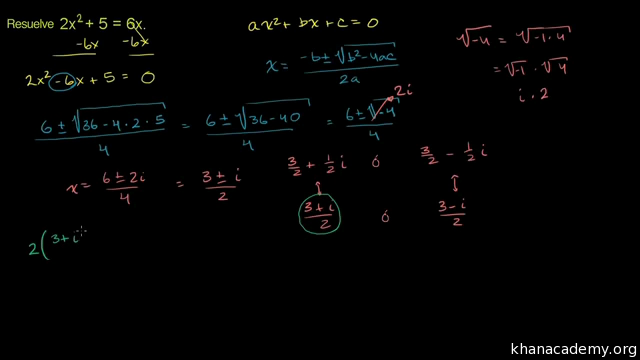 Resuelve 2x² + 5 = 6x.
-6x -6x
2x² - 6x + 5 = 0
ax² + bx + c = 0
x = (-b ± √(b² - 4ac))/2a
√-4 = √(-1·4)
= √-1 · √4
i · 2
(6 ± √(36 - 4·2·5))/4 = (6 ± √(36 - 40))/4 = (6 ± √-4)/4
2i
x = (6 ± 2i)/4 = (3 ± i)/2
3/2 + 1/2 i ó 3/2 - 1/2 i
(3 + i)/2 ó (3 - i)/2
2(3 + i
khanacademy.org